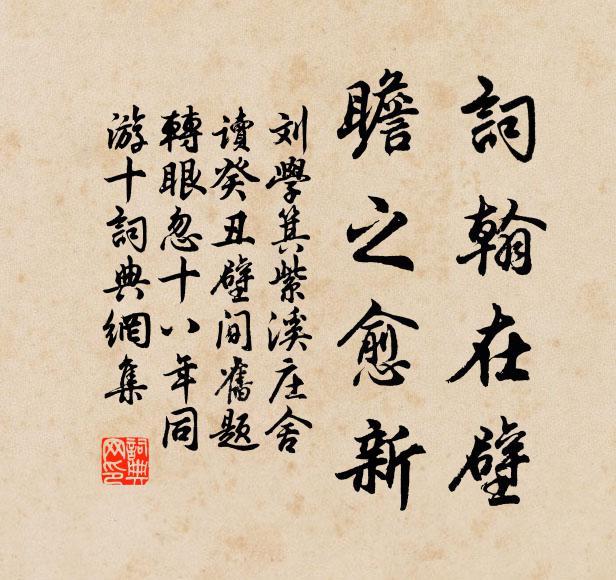 詞翰在壁
瞻之愈新
刘學箕紫溪庄舍
讀癸丑壁间舊题
轉眼忽十八年同
游十詞典網集
詞典网印